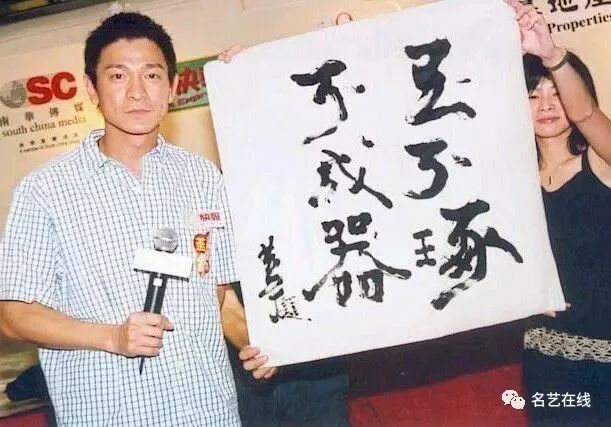 SC
南華傳媒
south china media
快報
地產
Properties
玉不琢
不成器
快報
名艺在线